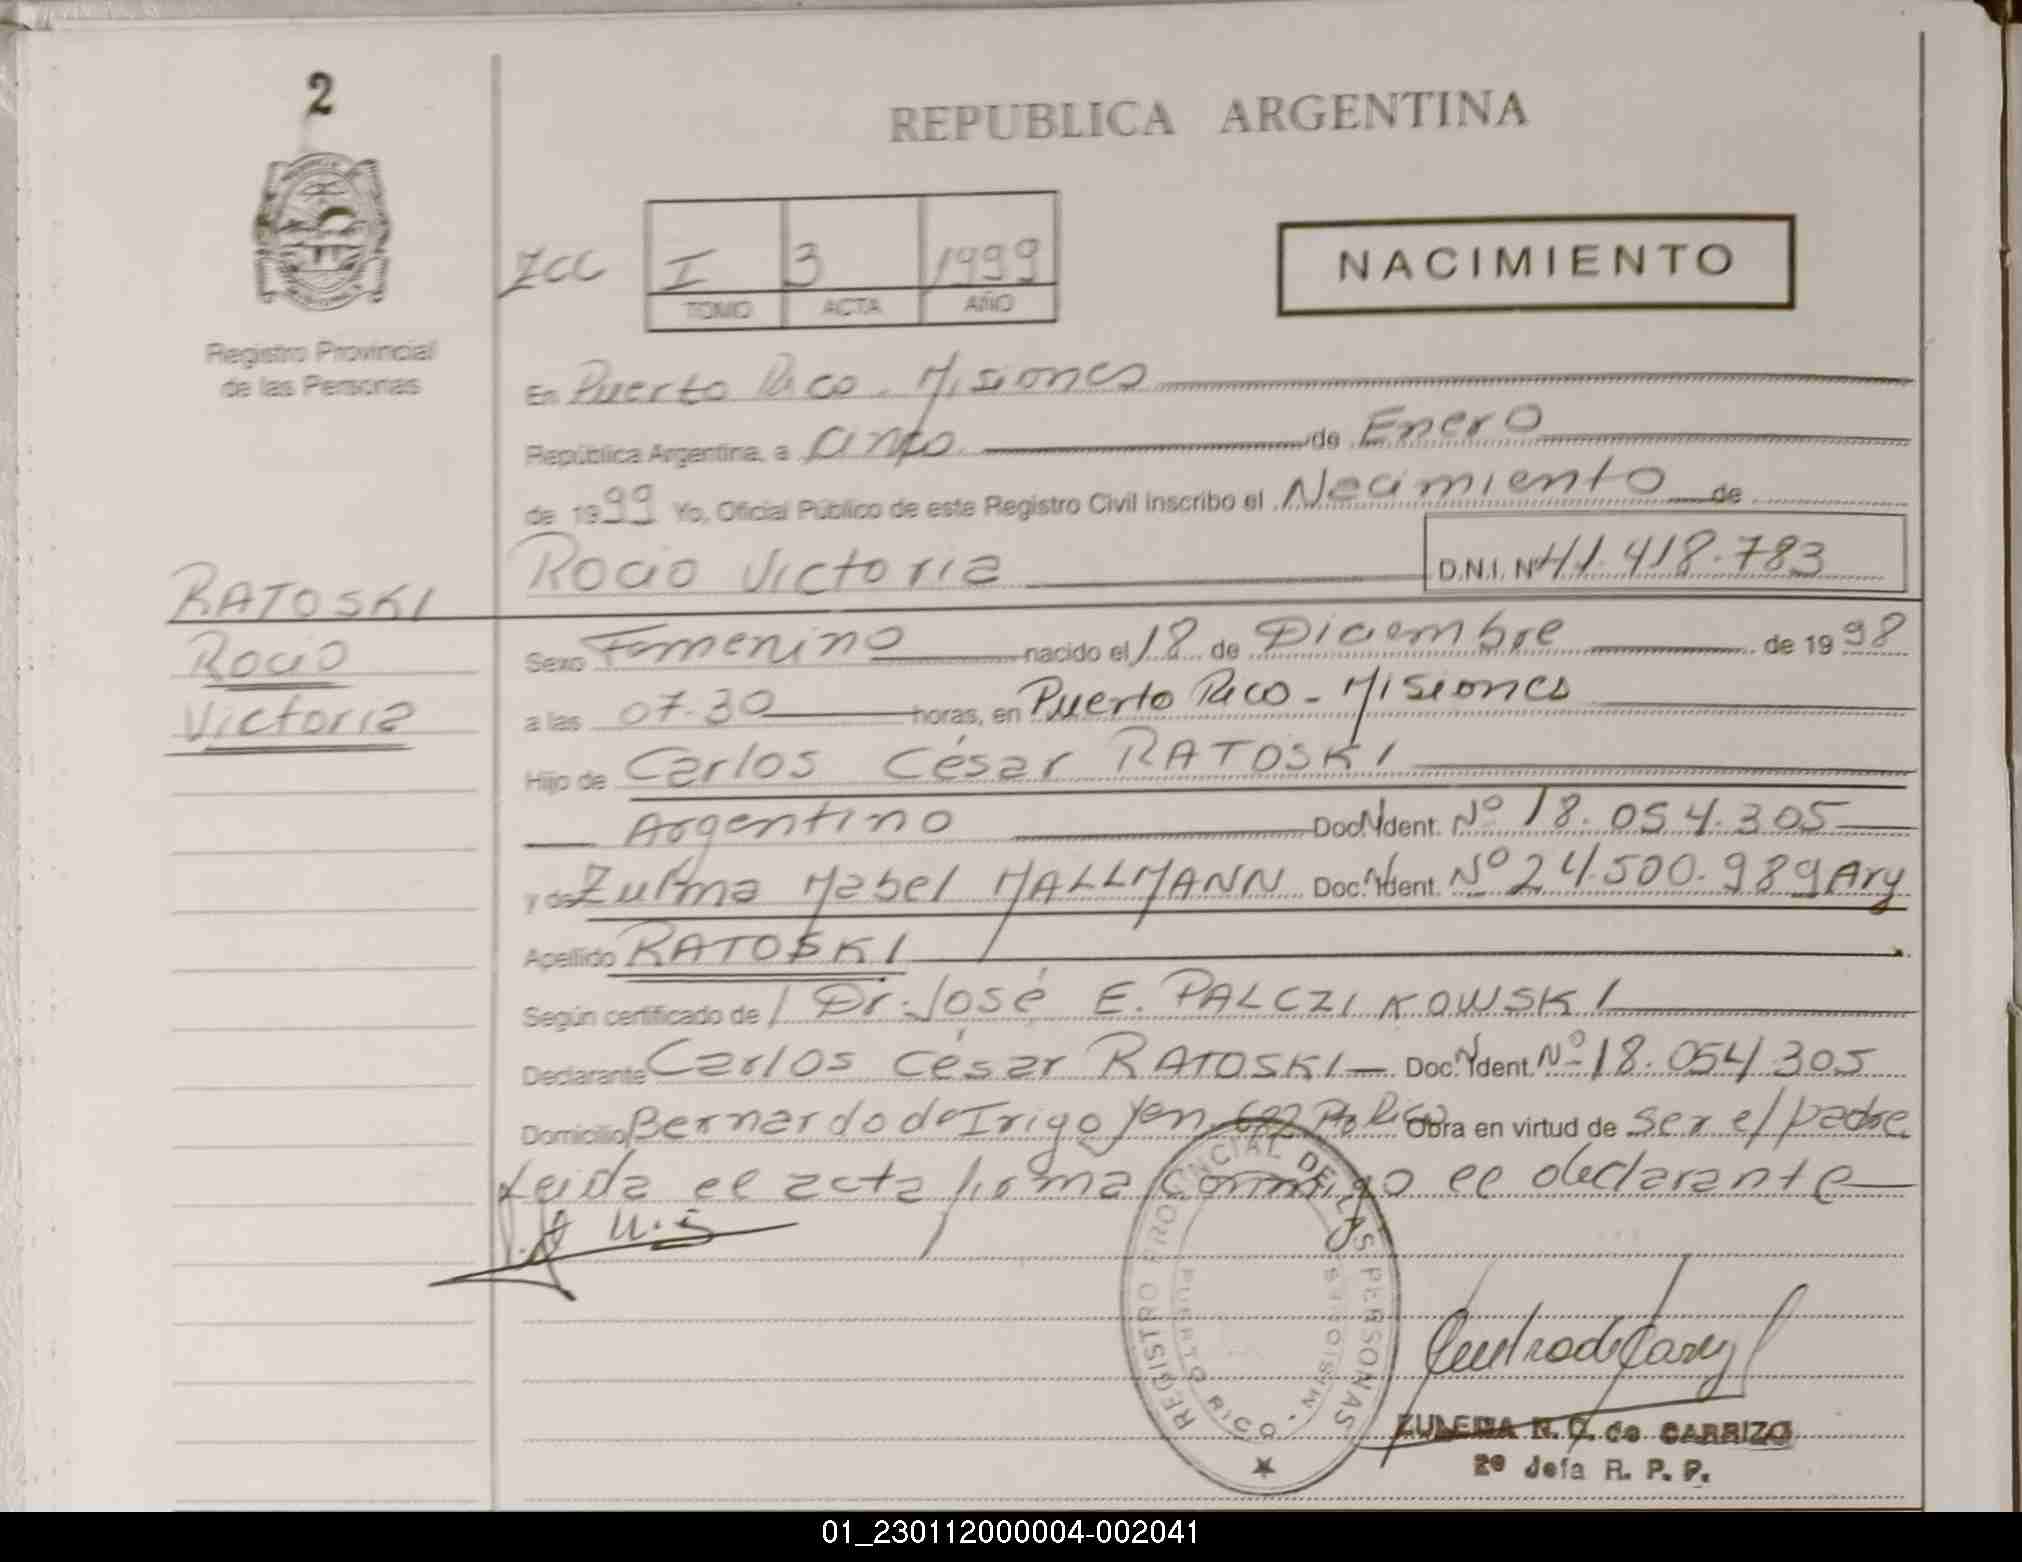 2
REPUBLICA ARGENTINA
ICC I 3 1999
TOMO ACTA AÑO
NACIMIENTO
Registro Provincial
de las Personas
En Puerto Rico - Misiones
República Argentina, a cinco de Enero
de 1999 Yo, Oficial Público de este Registro Civil Inscribo el Nacimiento de
Rocio Victoria D.N.I. Nº 41.418.783
RATOSKI
Rocio
Victoria
Sexo Femenino nacido el 18 de Diciembre de 1998
a las 07.30 horas, en Puerto Rico - Misiones
Hijo de Carlos César RATOSKI
Argentino Doc. Ident. Nº 18.054.305
y de Zulma Mabel MALLMANN Doc. Ident. Nº 24.500.989 Arg
Apellido RATOSKI
Según certificado de Dr. José E. PALCZIKOWSKI
Declarante Carlos César RATOSKI Doc. Ident. Nº 18.054.305
Domicilio Bernardo de Irigoyen Pto Rico Obra en virtud de ser el padre
Leida el acta firma conmigo el declarante
REGISTRO PROVINCIAL DE LAS PERSONAS
PUERTO RICO - MISIONES
ZULEMA N. C. de CARRIZO
2º Jefa R. P. P.
01_230112000004-002041